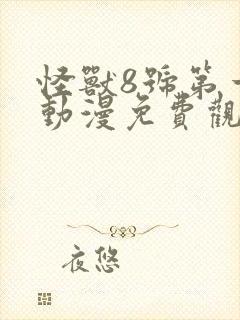 怪獸8號第
動漫免費觀
夜悠